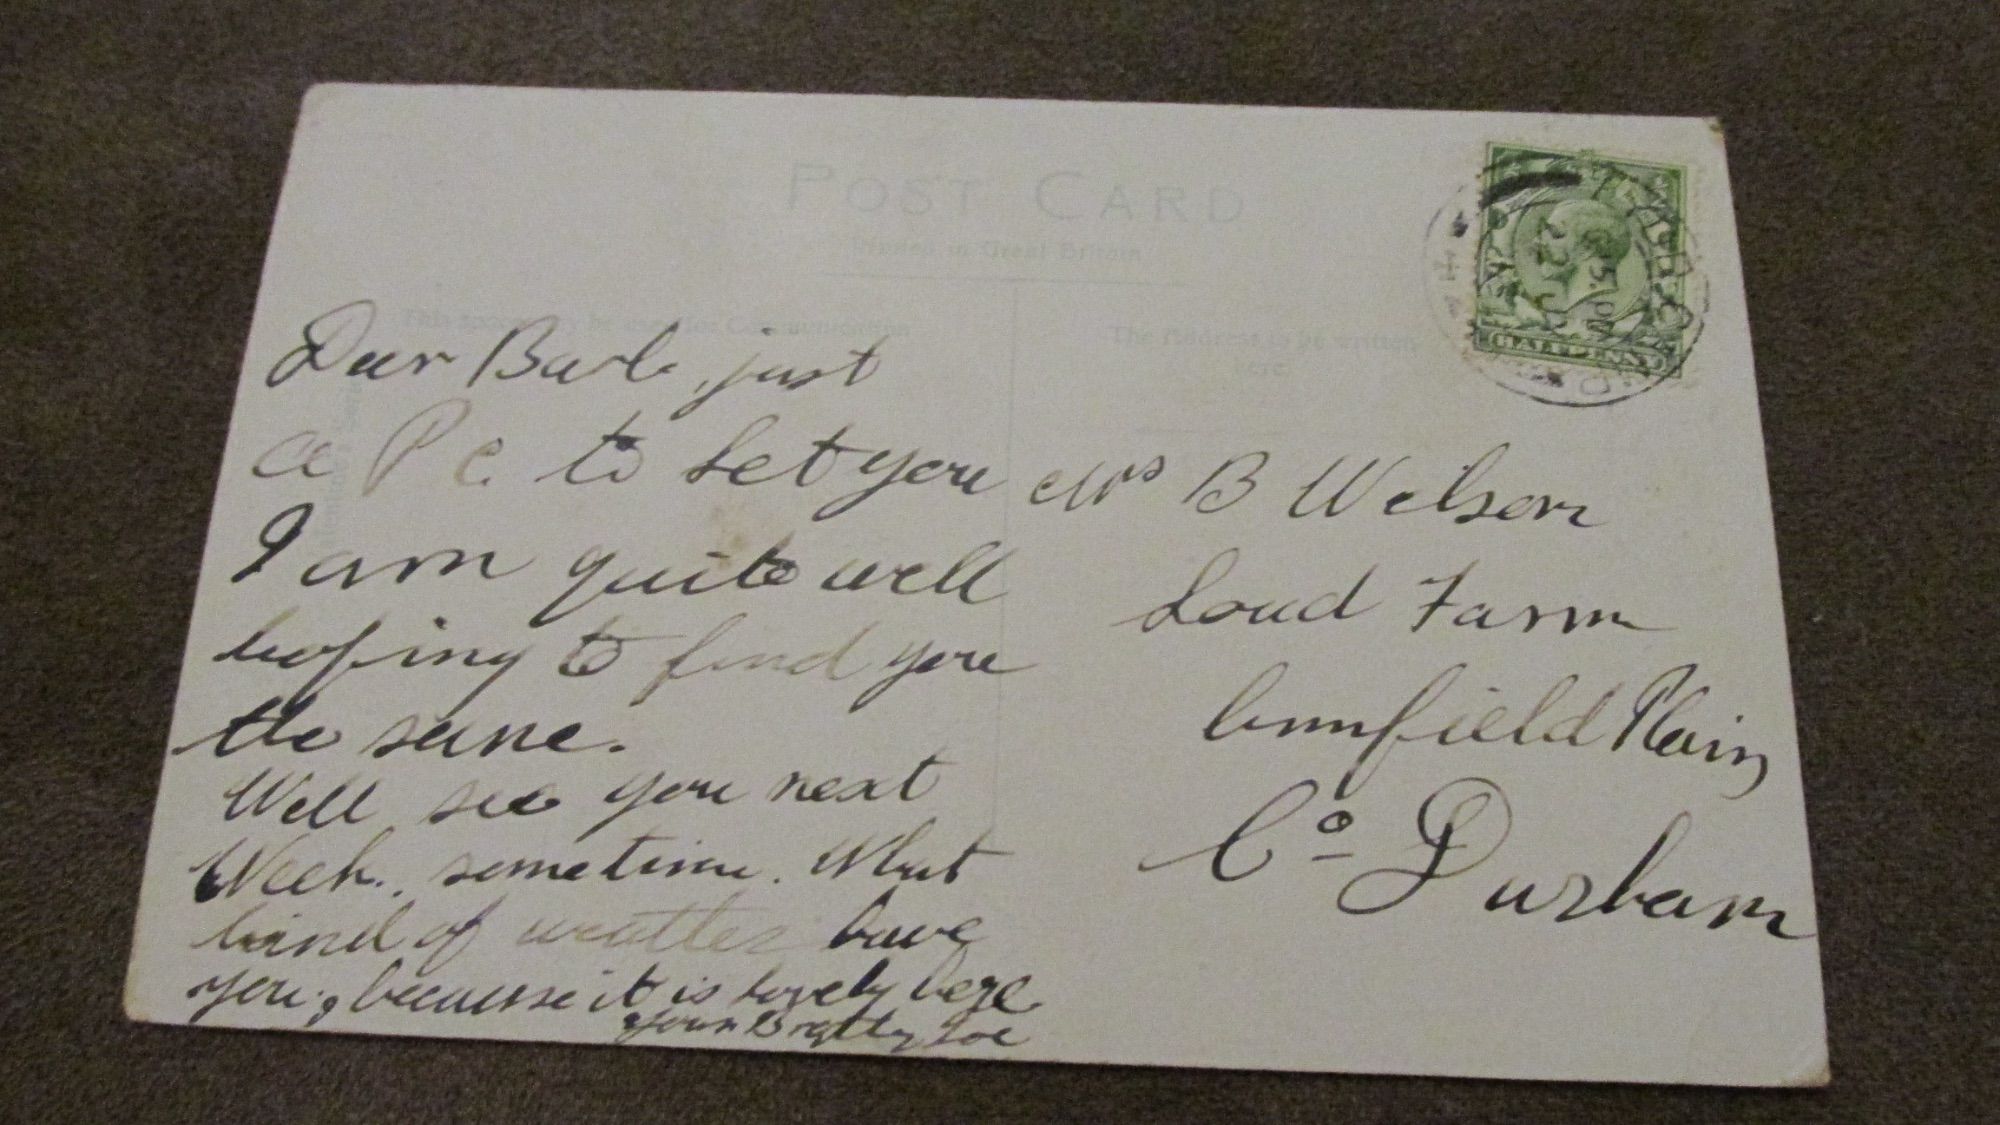 POST CARD
Printed in Great Britain
This space may be used for Communication
The Address to be written
here
Dear Barb, just
a P c. to let you
I am quite well
hoping to find you
the same.
Well see you next
Week., sometime. What
kind of weather have
you, because it is lovely here
Joe
Mrs B Wilson
Loud Farm
Annfield Plain
Co Durham
5. PM
22
HALF PENNY